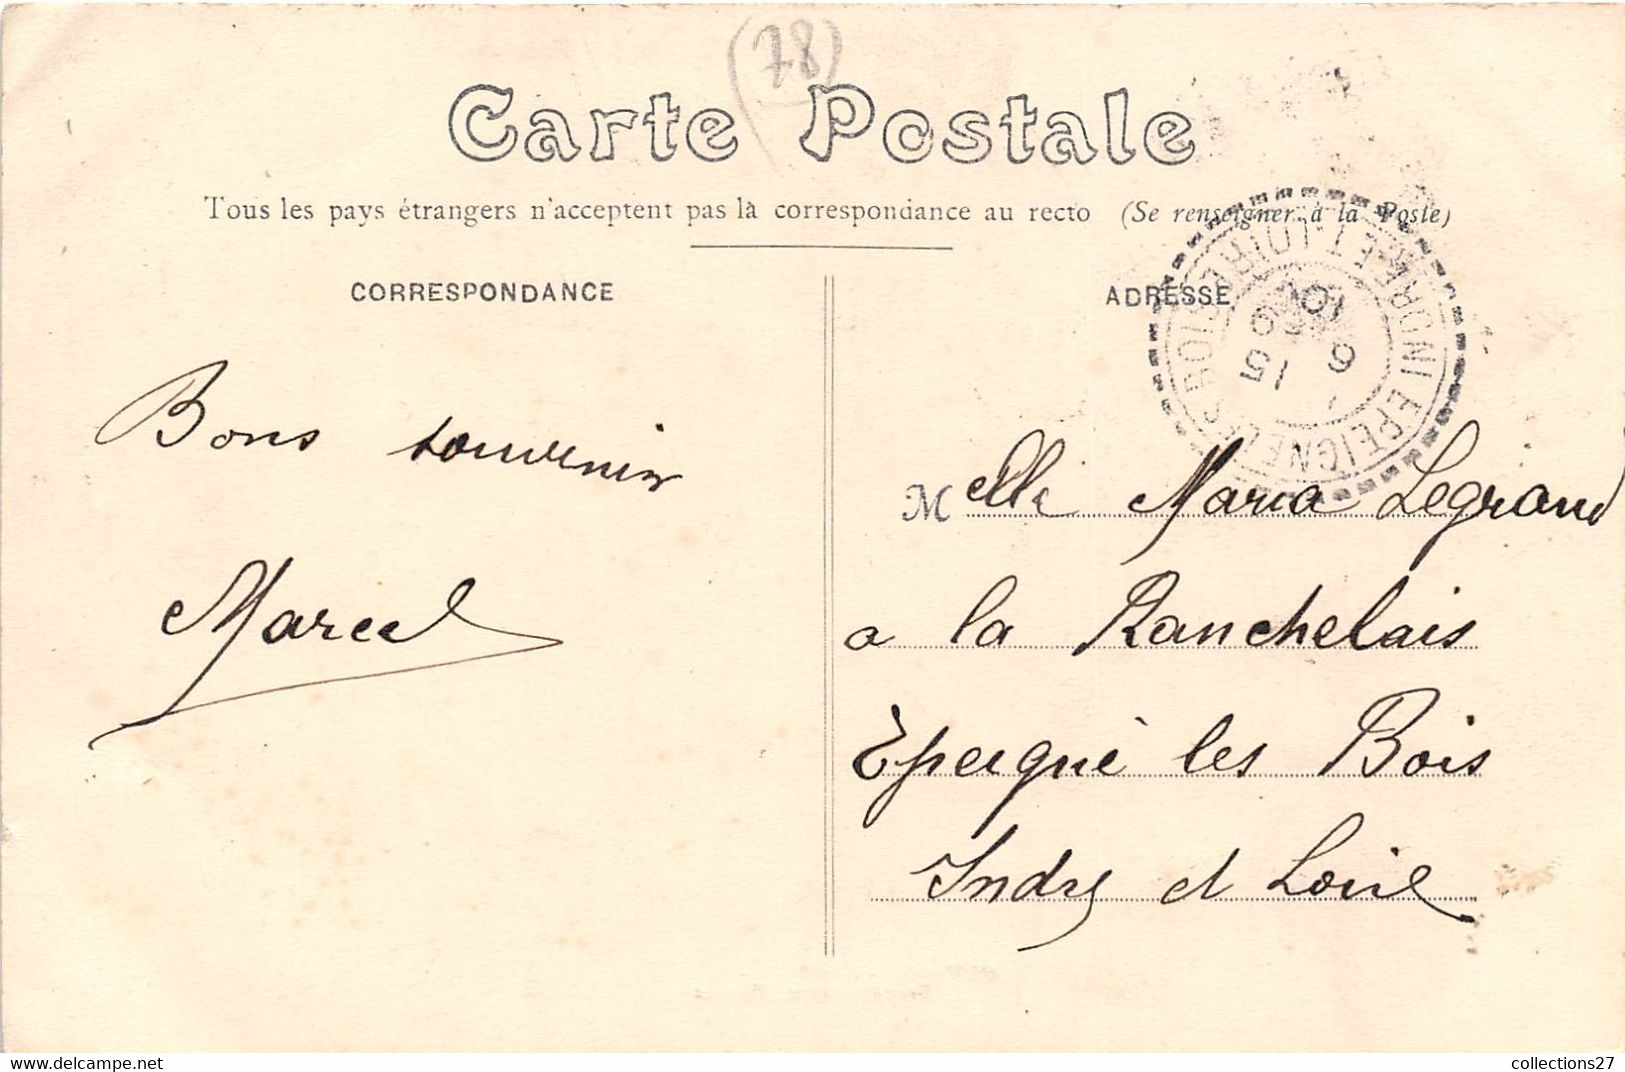 (78)
Carte Postale
Tous les pays étrangers n'acceptent pas la correspondance au recto (Se renseigner à la Poste)
CORRESPONDANCE
ADRESSE
Bons souvenir
Marcel
Melle Maria Legrand
a la Ranchelais
Epeigné les Bois
Indre et Loire
EPEIGNE LES BOIS
INDRE-ET-LOIRE
15
6
10
collections27